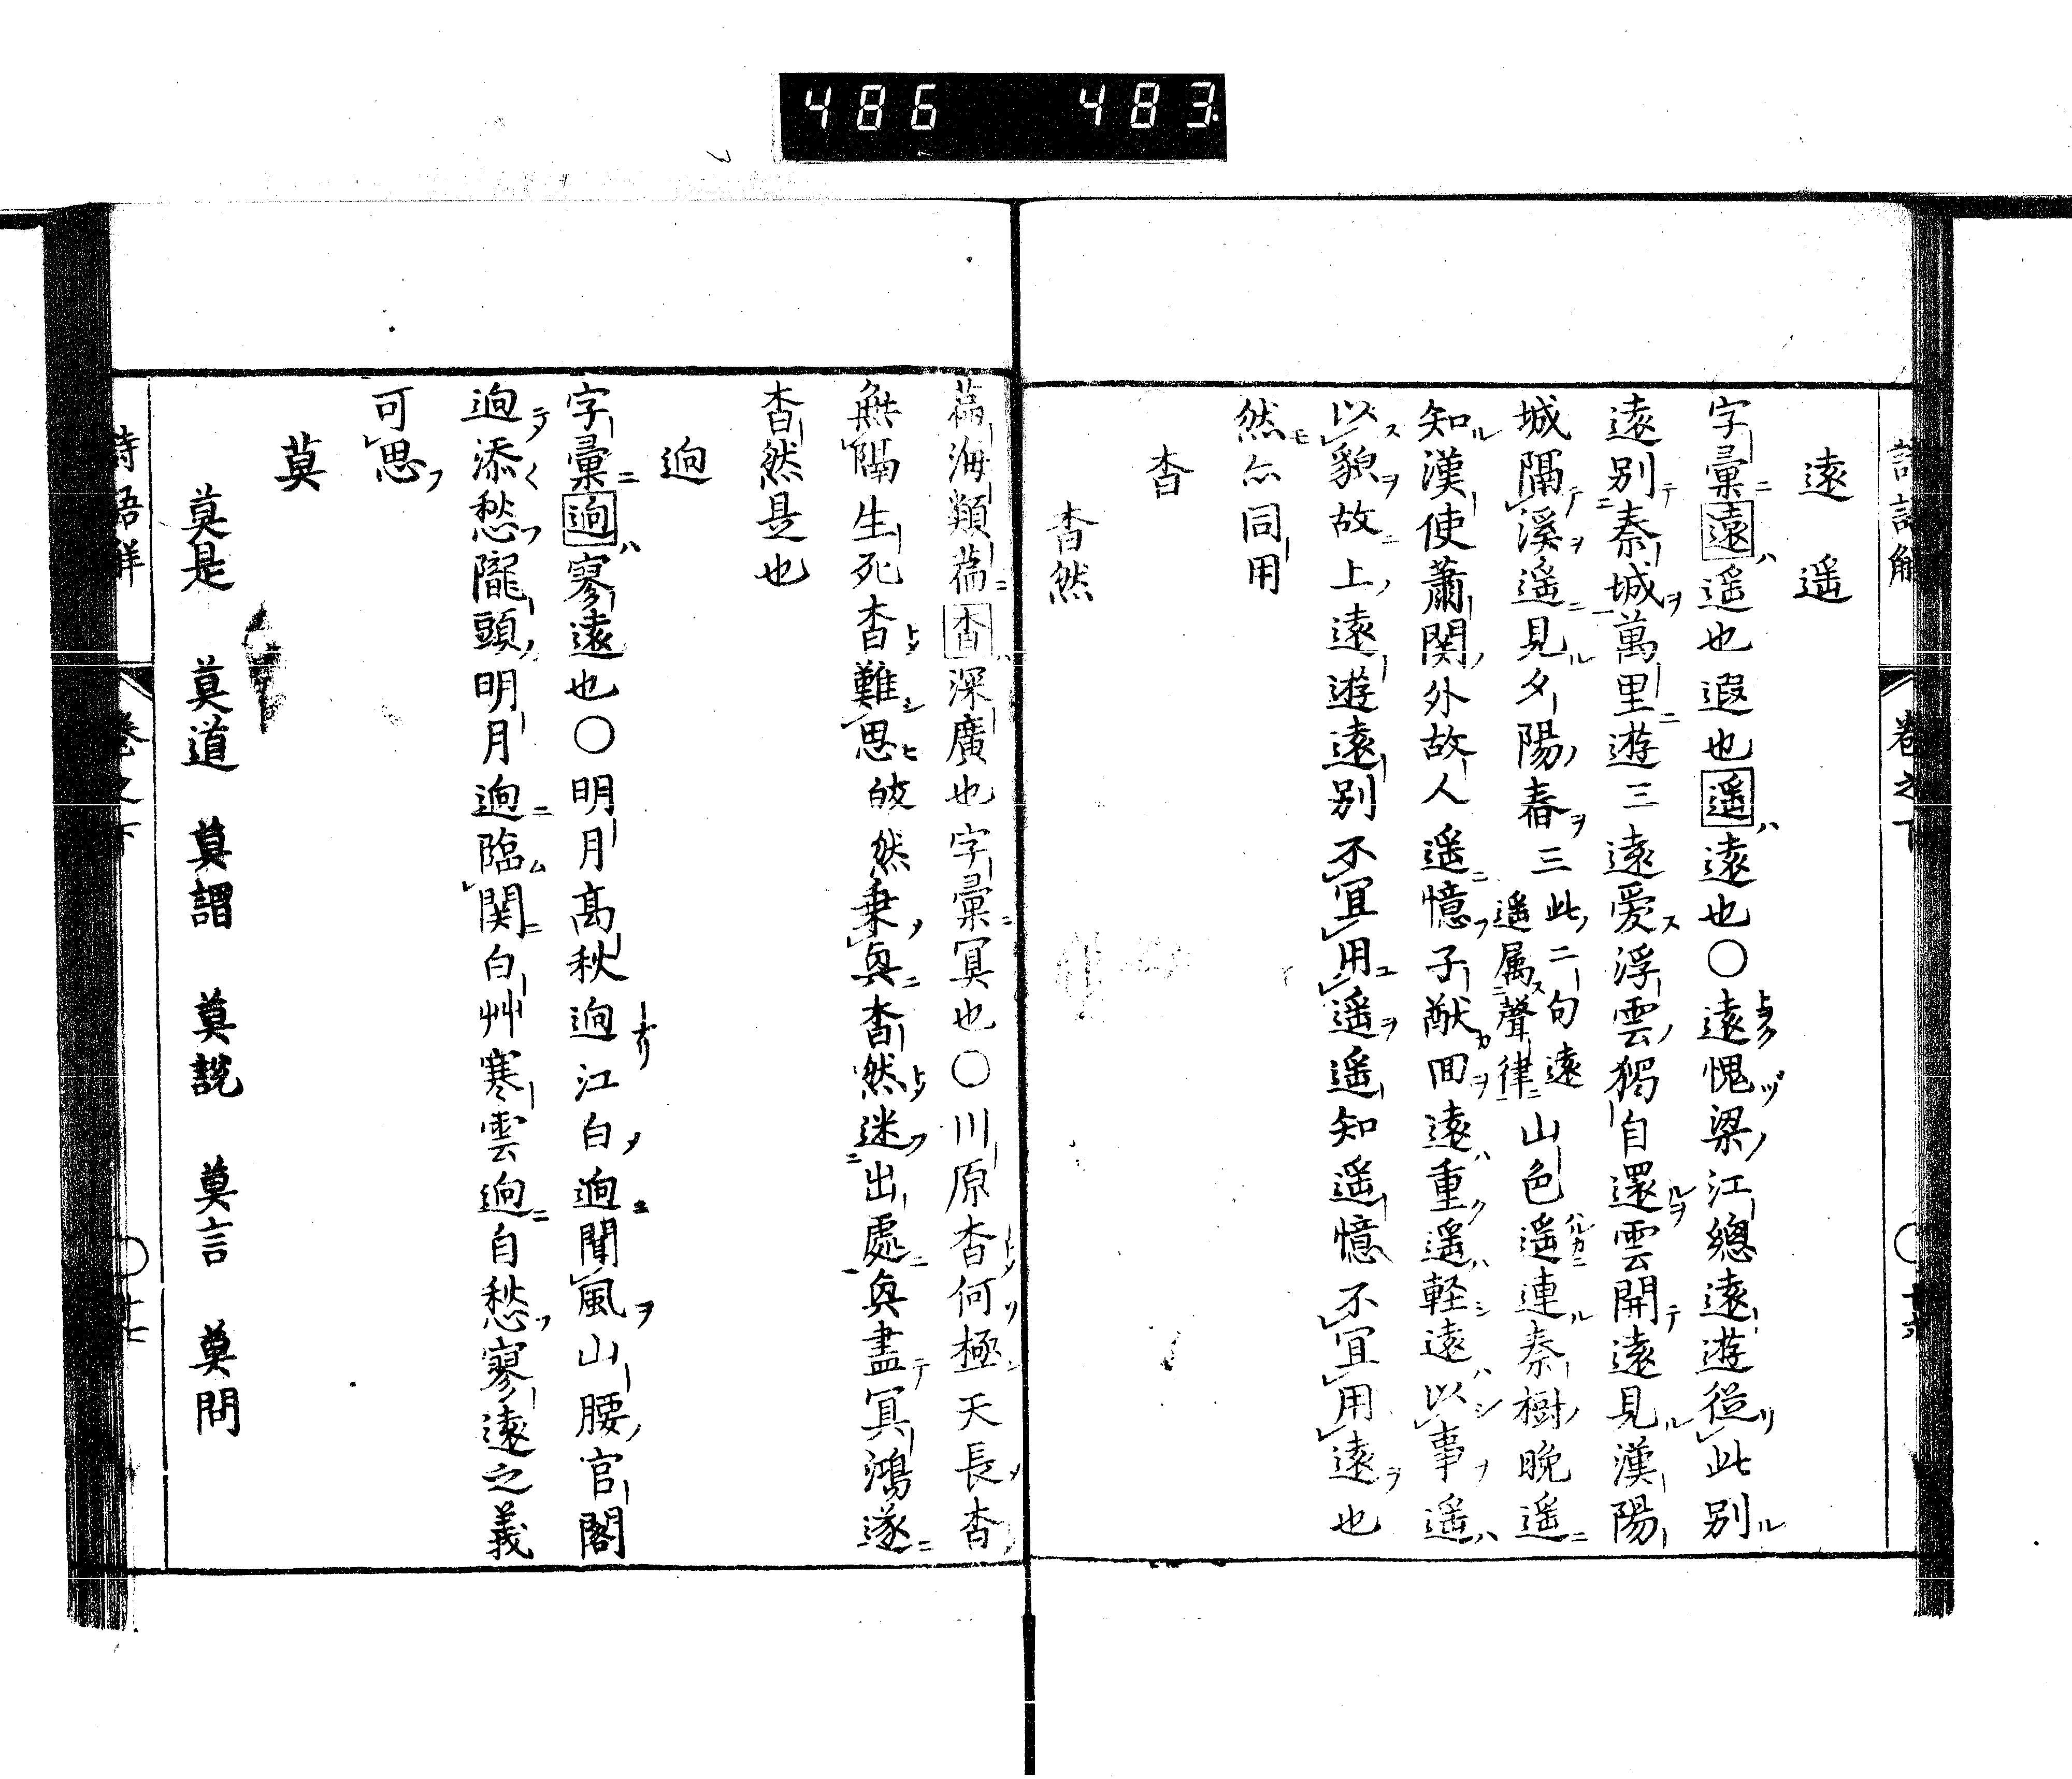 486 483
遠 遥
字彙遠遥也遐也遥遠也〇遠愧梁江總遠遊從此別
遠別秦城萬里遊三遠愛浮雲獨自還雲開遠見漢陽
城隔溪遥見夕陽舂三此二句遠遥属聲律山色遥連秦樹晚遥
知漢使蕭関外故人遥憶子猷回遠重遥軽遠以事遥
以貌故上遠遊遠別不宜用遥遥知遥憶不宜用遠也
然亦同用
杳
杳然
篇海類篇杳深廣也字彙冥也〇川原杳何極天長杳
無隔生死杳難思皎然乗興杳然迷出處興盡冥鴻遂
杳然是也
逈
字彙逈寥遠也〇明月高秋逈江白逈聞風山腰官閣
逈添愁隴頭明月逈臨関白艸寒雲逈自愁寥遠之義
可思
莫
莫是 莫道 莫謂 莫説 莫言 莫問